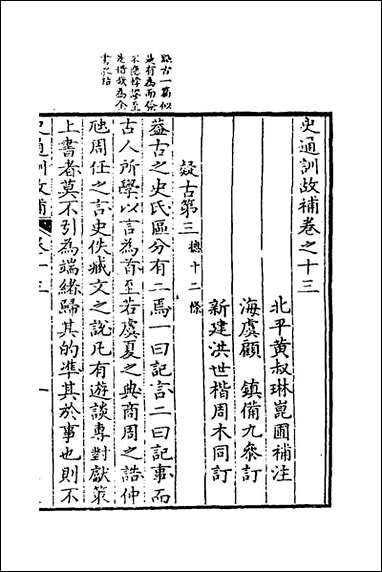 史通訓故補卷之十三
北平黃叔琳崑圃補注
海虞顧 鎮備九參訂
新建洪世楷周木同訂
疑古第三 總十二條
疑古一篇似
是有為而
不應悖謬至
是惜哉為全
書之玷
蓋古之史氏區分有二焉一曰記言二曰記事而
古人所學以言為首至若虞夏之典商周之誥仲
虺周任之言史佚臧文之說凡有遊談專對獻策
上書者莫不引為端緒歸其的準其於事也則不
史通訓故補 卷十三 一